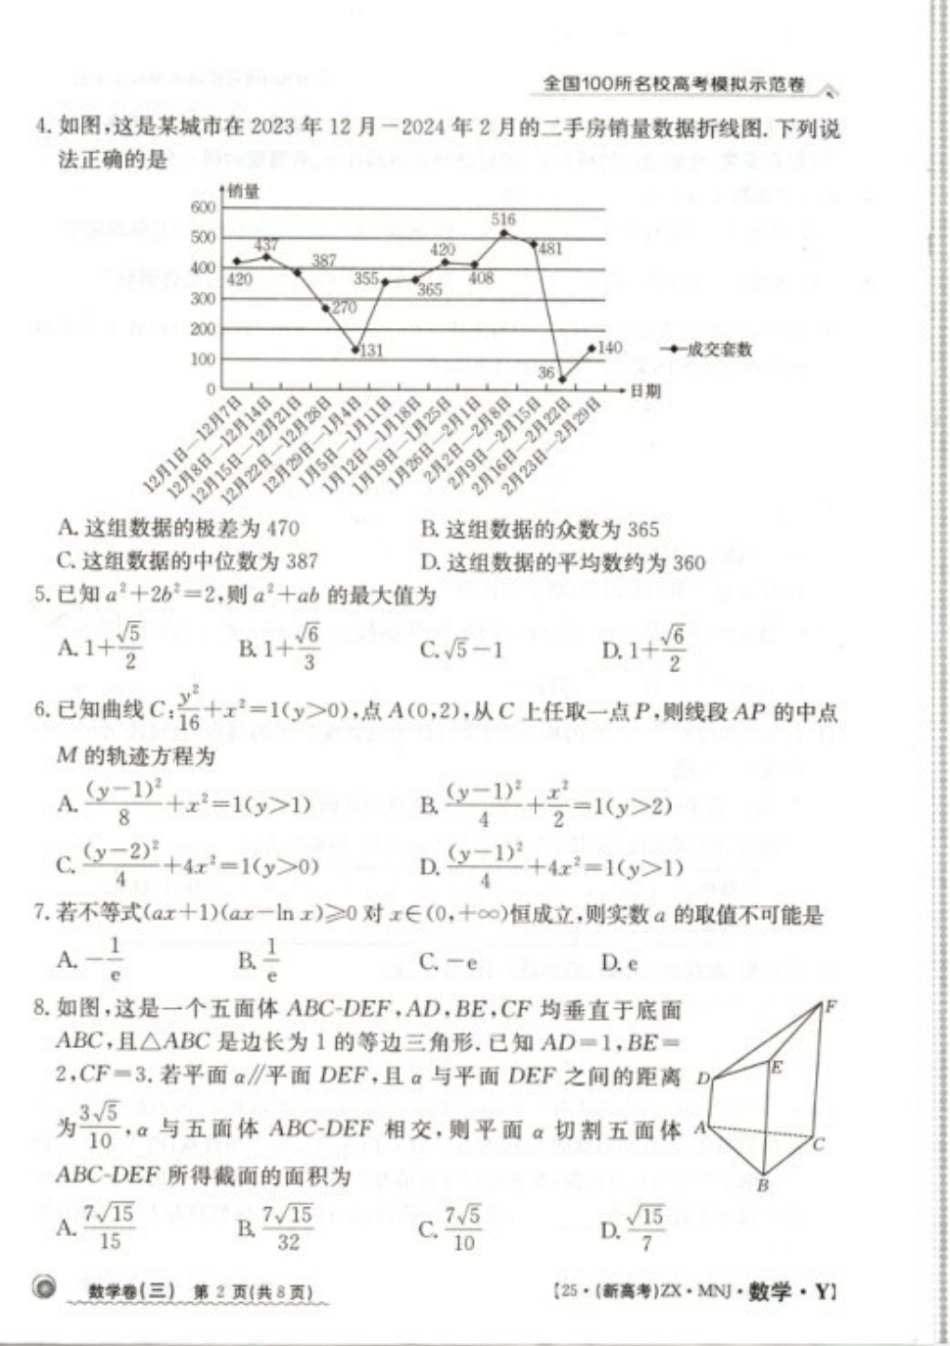 全国100所名校高考模拟示范卷
4. 如图,这是某城市在 2023 年 12 月—2024 年 2 月的二手房销量数据折线图. 下列说
法正确的是
销量
600
500
400
300
200
100
0
420
437
387
270
131
355
365
420
408
516
481
36
140
成交套数
日期
12月1日—12月7日
12月8日—12月14日
12月15日—12月21日
12月22日—12月28日
12月29日—1月4日
1月5日—1月11日
1月12日—1月18日
1月19日—1月25日
1月26日—2月1日
2月2日—2月8日
2月9日—2月15日
2月16日—2月22日
2月23日—2月29日
A. 这组数据的极差为 470 B. 这组数据的众数为 365
C. 这组数据的中位数为 387 D. 这组数据的平均数约为 360
5. 已知 a²+2b²=2,则 a²+ab 的最大值为
A. 1+√5/2 B. 1+√6/3 C. √5−1 D. 1+√6/2
6. 已知曲线 C: y²/16+x²=1(y>0),点 A(0,2),从 C 上任取一点 P,则线段 AP 的中点
M 的轨迹方程为
A. (y−1)²/8+x²=1(y>1) B. (y−1)²/4+x²/2=1(y>2)
C. (y−2)²/4+4x²=1(y>0) D. (y−1)²/4+4x²=1(y>1)
7. 若不等式(ax+1)(ax−ln x)≥0 对 x∈(0,+∞)恒成立,则实数 a 的取值不可能是
A. −1/e B. 1/e C. −e D. e
8. 如图,这是一个五面体 ABC-DEF,AD,BE,CF 均垂直于底面
ABC,且△ABC 是边长为 1 的等边三角形. 已知 AD=1,BE=
2,CF=3. 若平面 α∥平面 DEF,且 α 与平面 DEF 之间的距离
为 3√5/10,α 与五面体 ABC-DEF 相交,则平面 α 切割五面体
ABC-DEF 所得截面的面积为
F
E
D
A
C
B
A. 7√15/15 B. 7√15/32 C. 7√5/10 D. √15/7
数学卷(三) 第 2 页(共 8 页) 【25·(新高考)ZX·MNJ·数学·Y】